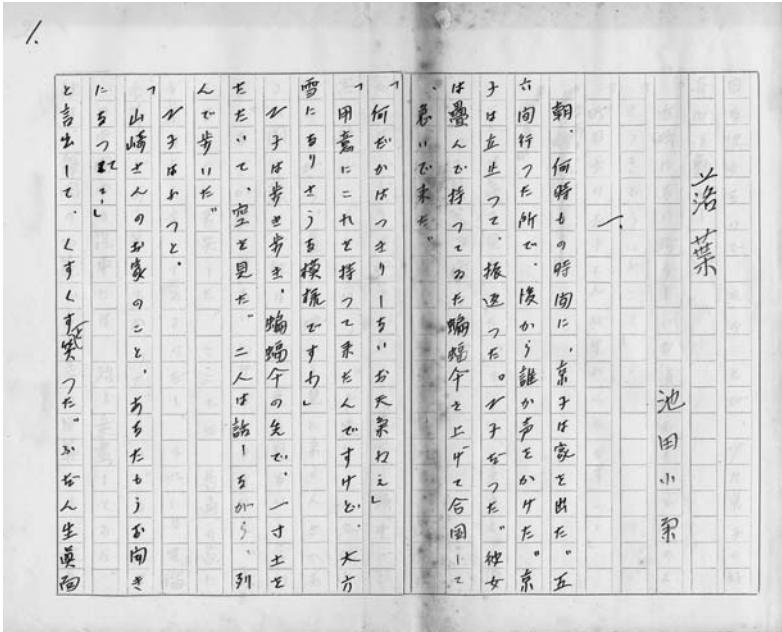 1.
落葉
池田小菊
一、
朝、何時もの時間に、京子は家を出た。五
六間行つた所で、後から誰か声をかけた。京
子は立止つて、振返つた。N子だつた。彼女
は畳んで持つてゐた蝙蝠傘を上げて合図して
急いで来た。
「何だかはつきりしないお天気ねえ」
「用意にこれを持つて来たんですけど、大方
雪になりさうな模様ですわ」
N子は歩き歩き、蝙蝠傘の先で、一寸土を
たたいて、空を見た。二人は話しながら、列
んで歩いた。
N子はふつと、
「山崎さんのお家のこと、あなたもうお聞き
になつて?」
と言出して、くすくすと笑つた。ふだん生眞面